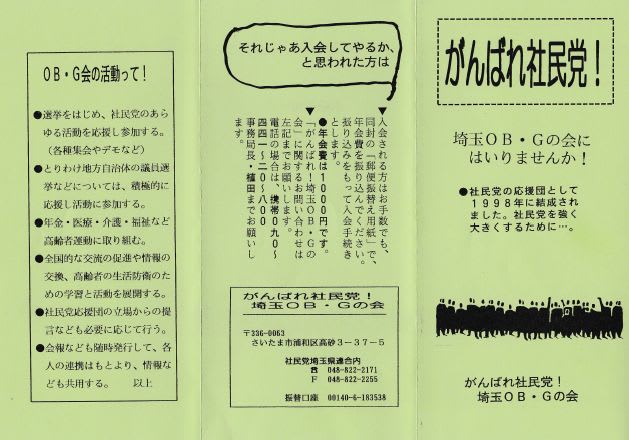 OB・G会の活動って！
●選挙をはじめ、社民党のあら
ゆる活動を応援し参加する。
（各種集会やデモなど）
●とりわけ地方自治体の議員選
挙などについては、積極的に
応援し活動に参加する。
●年金・医療・介護・福祉など
高齢者運動に取り組む。
●全国的な交流の促進や情報の
交換、高齢者の生活防衛のた
めの学習と活動を展開する。
●社民党応援団の立場からの提
言なども必要に応じて行う。
●会報なども随時発行して、各
人の連携はもとより、情報な
ども共用する。　以上
それじゃあ入会してやるか、
と思われた方は
▼入会される方はお手数でも、
同封の「郵便振替え用紙」で、
年会費を振り込んでください。
振り込みをもって入会手続き
とします。
●年会費は1000円です。
▼「がんばれ！埼玉OB・Gの
会」に関するお問い合わせは
左記までお願いします。
電話の場合は、携帯〇九〇～
四四一～二〇～八〇〇
事務局長・植田までお願いし
ます。
がんばれ社民党！
埼玉OB・Gの会
〒336-0063
さいたま市浦和区高砂3－37－5
社民党埼玉県連合内
☎ 048-822-2171
F 048-822-2255
振替口座 00140-6-183538
がんばれ社民党！
埼玉OB・Gの会に
はいりませんか！
●社民党の応援団として
1998年に結成され
ました。社民党を強く
大きくするために…。
がんばれ社民党！
埼玉OB・Gの会